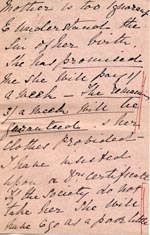 mother is too ignorant
to understand the
sin of her birth.
She has promised
me she will pay 1/
a week – The remain
of a week will be
guaranteed & her
clothes provided –
I have insisted
upon a Dr's certificate
if the Society do not
take her She will
have to go as a poor little